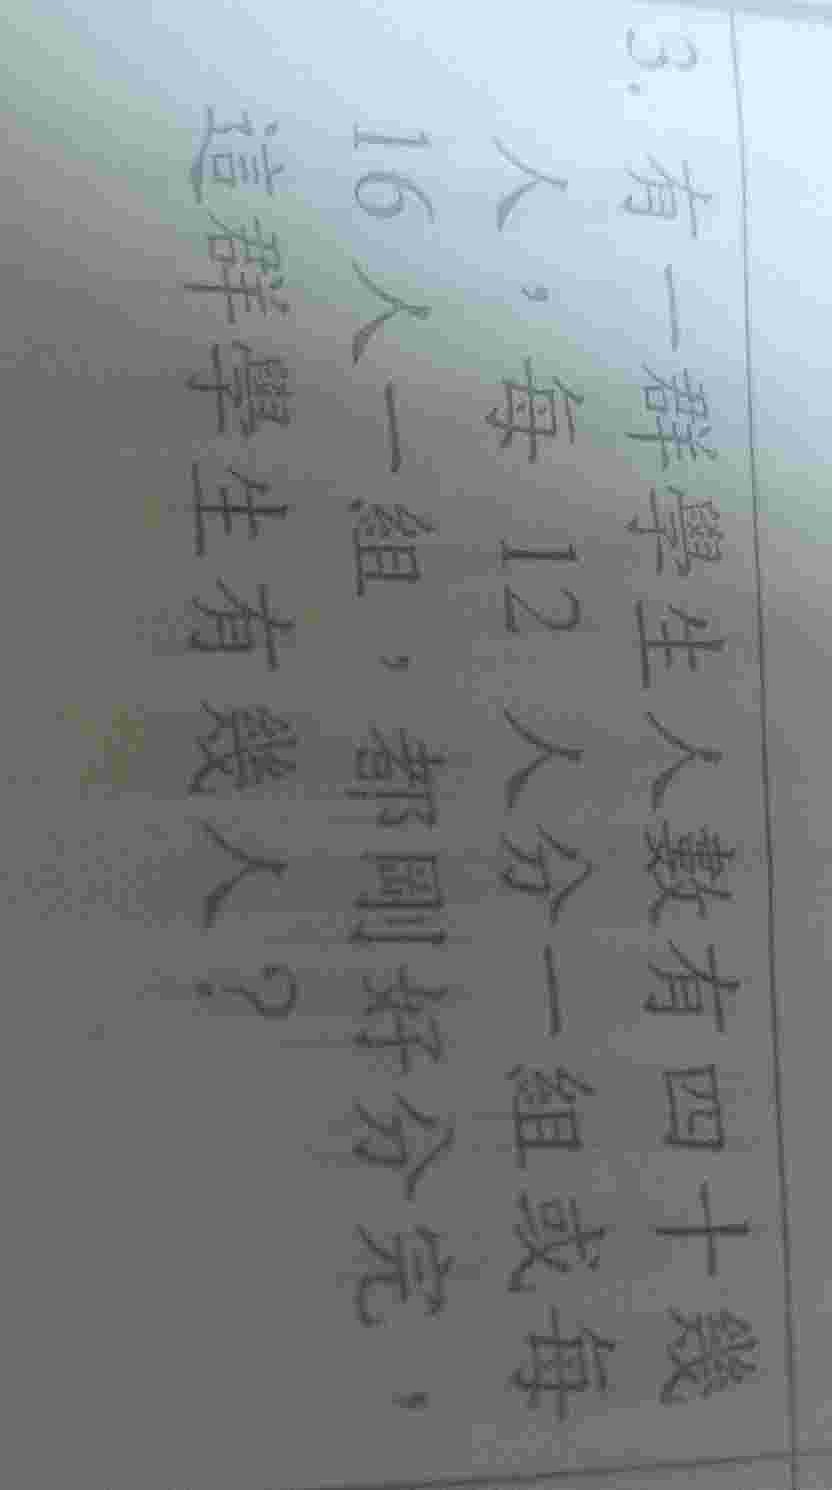 3. 有一群學生人數有四十幾
人，每 12 人分一組或每
16 人一組，都剛好分完，
這群學生有幾人？